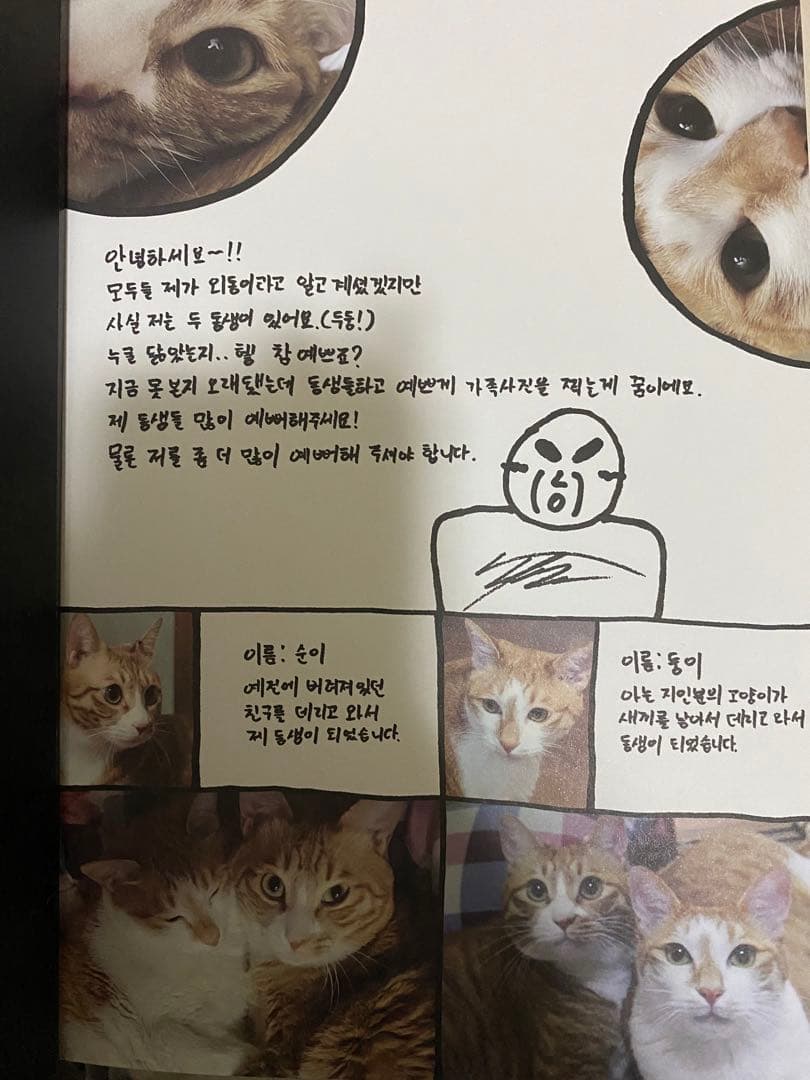 안녕하세요~!!
모두들 제가 외동이라고 알고계셨겠지만
사실 저는 두 동생이 있어요.(두둥!)
누굴 닮았는지.. 헬 참 예쁘죠?
지금 못본지 오래됐는데 동생들하고 예쁘게 가족사진을 찍는게 꿈이에요.
제 동생들 많이 예뻐해주세요!
물론 저를 좀 더 많이 예뻐해 주셔야 합니다.
이름: 순이
예전에 버려져있던
친구를 데리고 와서
제 동생이 되었습니다.
이름: 둥이
아는 지인분의 고양이가
새끼를 낳아서 데리고 와서
동생이 되었습니다.